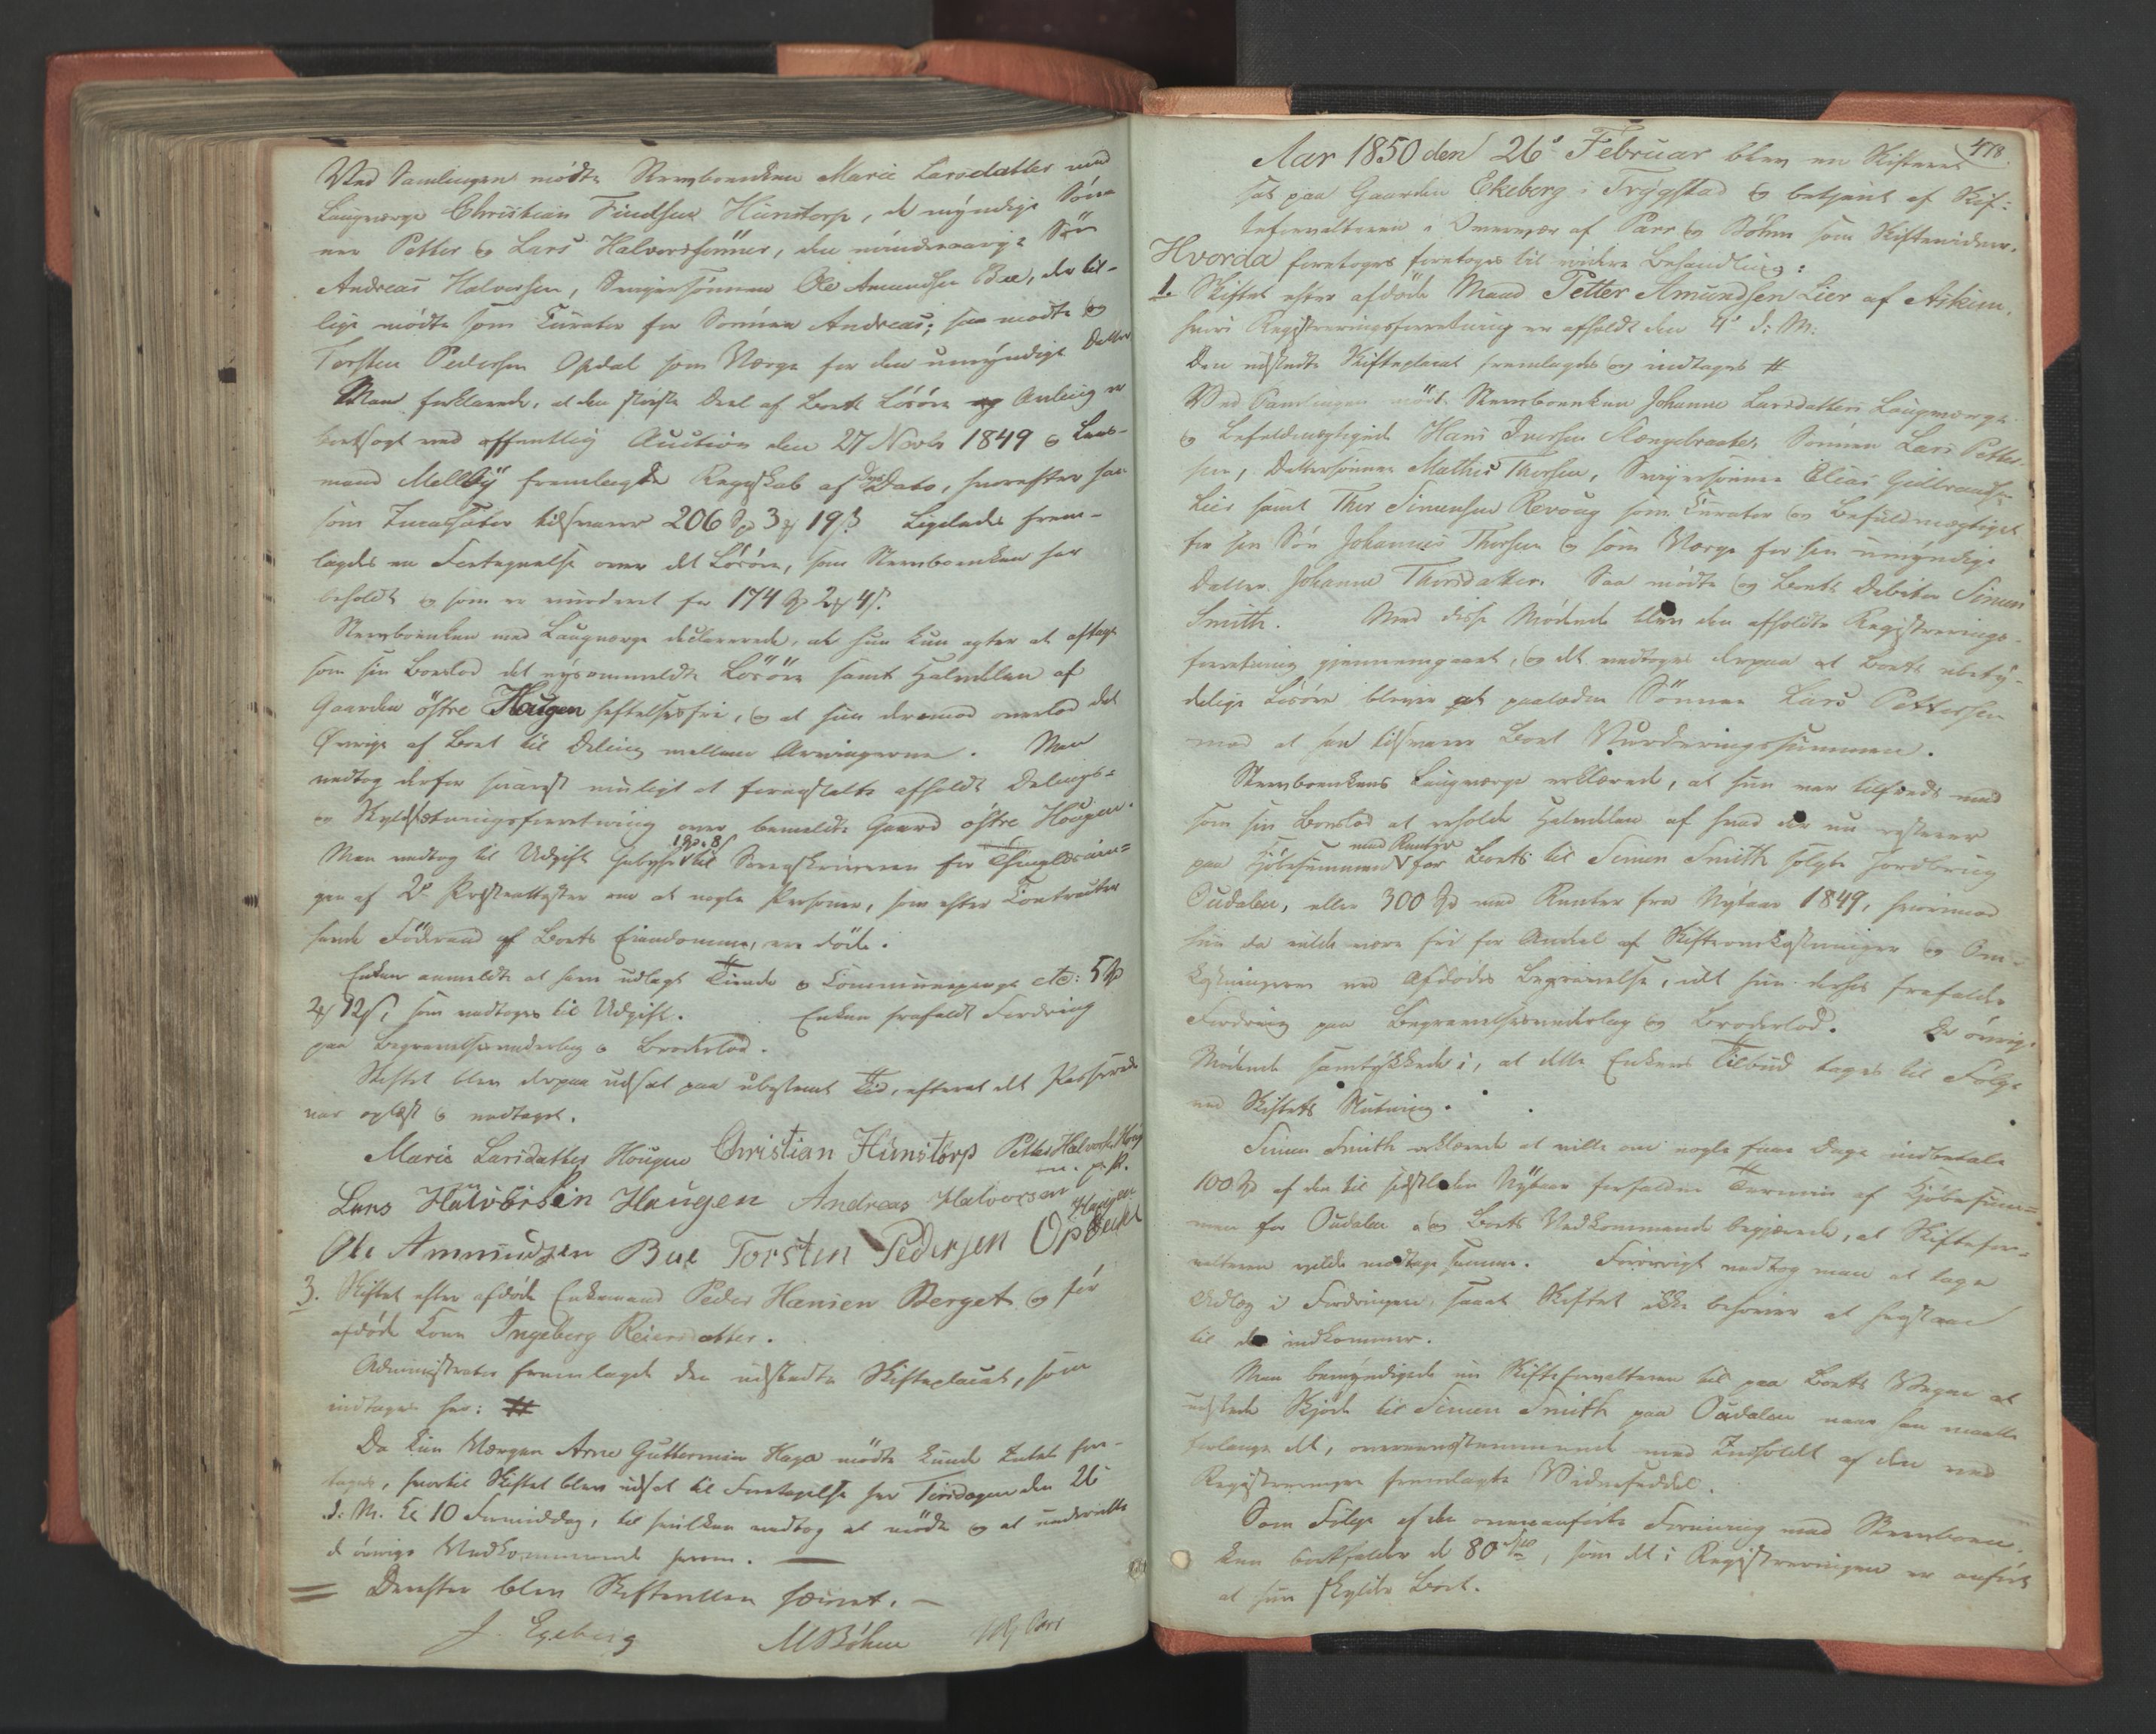 Ved Samlingen mødte Stervboenken Marie Larsdatter med
Laugværge Christian Findsen Hunstorp, de myndige Sön-
ner Petter & Lars Halvorsønner, den mindreaarige Sön
Andreas Halvorsen, Svigersønnen Ole Amundsen Bue, der til-
lige mødte som Curator for Sønnen Andreas; saa mødte og
Torsten Pedersen Opdal som Værge for den umyndige Datter
Man forklarede, at den største Deel af Boets Løsøre og Avling er
bortsolgt ved offentlig Auction den 27 Novbr 1849 & Lens-
mand Mellby fremlagde Regnskab af Dags Dato, hvorefter han
som Incassator tilsvarer 206 Spd 3 ƒ 19 ß. Ligeledes frem-
lagdes en Fortegnelse over det Løsøre, som Stervboenken har
beholdt & som er vurderet for 174 Spd 2 ƒ 4 ß.
Stervboenken med Laugværge declarerede, at hun kun agter at aftage
som sin Boeslod det nysanmeldte Løsöre samt Halvdelen af
Gaarden östre Haugen heftelsesfri, og at hun derimod overlod det
Øvrige af Boet til Deling mellem Arvingerne. Man
vedtog derfor snarest muligt at foranstalte afholdt Delings-
og Skyldsætningsforretning over bemeldte Gaard östre Hougen.
Man vedtog til Udgift 1 Spd. 8 ß til Sorenskriveren for Thinglæsnin-
gen af 2de Præsteattester om at nogle Personer, som efter Contracter
havde Föderaad af Boets Eiendomme, ere döde.
Enken anmeldte at have udlagt Tiende & Communepenge etc: 5 Spd
2 ƒ 12 ß, som vedtoges til Udgift. Enken frafaldt Fordring
paa Begravelsesvederlag & Broderlod.
Skiftet blev derpaa udsat paa ubestemt Tid, efterat det Passerede
var oplæst & vedtaget.
Marie Larsdatter Hougen Christian Hunstorp Petter Halvorsen Houg
m. p. P.
Lars Halvorsen Haugen Andreas Halvorsen Haugen
Ole Ammundsen Bue Torsten Pedersen Opdahl
3. Skiftet efter afdøde Enkemand Peder Hansen Berget & før
afdøde Kone Ingeborg Reiersdatter.
Administrator fremlagde den udstedte Skifteplacat, som
indtages her: #
Da kun Værgen Arne Guttormsen Haga mødte kunde Intet fore-
tages, hvortil Skiftet blev udsat til Foretagelse her Tirsdagen den 26
d: M. Kl 10 Formiddag, til hvilken vedtog at møde & at underrette
de övrige Vedkommende herom. —
Derefter blev Skifteretten hævet. —
J. Egeberg MBöhm
478.
Aar 1850 den 26de Februar blev en Skifteret
sat paa Gaarden Ekeberg i Trygstad & betjent af Skif-
teforvalteren i Overvær af Parr & Böhm som Skiftevidner.
Hvorda foretoges foretoges til videre Behandling:
1. Skiftet efter afdøde Mand Petter Amundsen Lier af Askim,
hvori Registreringsforretning er afholdt den 4de d: M:
Den udstedte Skifteplacat fremlagdes og indtages #
Ved Samlingen mödte Stervboenken Johanne Larsdatters Laugværge
& Befuldmægtigede Hans Iversen Slængebraaten, Sønnen Lars Petter-
sen, Dattersønnen Mathis Thorsen, Svigersønnen Elias Gulbrandsen
Lier samt Thor Simensen Revoug som Curator og Befuldmægtiget
for sin Søn Johannes Thorsen & som Værge for sin umyndige
Datter Johanne Thorsdatter. Saa mødte og Boets Debitor Simen
Smith. Med disse Mødende blev den afholdte Registrerings-
forretning gjennemgaaet, og det vedtoges derpaa at Boets ubety-
delige Løsøre bliver at overlade Sönnen Lars Pettersen
mod at han tilsvarer Boet Vurderingssummen.
Stervboenkens Laugværge erklærede, at hun var tilfreds med
som sin Boeslod at erholde Halvdelen af hvad der nu resterer
paa Kjöbesummen med Renter for Boets til Simen Smith solgte Jordbrug
Oudalen, eller 300 Spd med Renter fra Nytaar 1849, hvorimod
hun da vilde være fri for Andeel af Skifteomkostninger & Om-
kostningerne ved Afdødes Begravelse, idet hun derhos frafaldt
Fordring paa Begravelsesvederlag og Broderlod. De övrige
Mödende samtykkede i, at dette Enkens Tilbud tages til Følge
ved Skiftets Slutning.
Simen Smith erklærede at ville om nogle faae Dage indbetale
100 Spd af den til sidstleden Nytaar forfaldne Termin af Kjöbesum-
men for Oudalen og Boets Vedkommende begjærede, at Skiftefor-
valteren vilde modtage samme. Forøvrigt vedtog man at tage
Udlæg i Fordringen, saaat Skiftet ikke behøver at henstaae
til de indkommer.
Man bemyndigede nu Skifteforvalteren til paa Boets Vegne at
udstede Skjöde til Simen Smith paa Oudalen naar han maatte
forlange det, overeensstemmende med Indholdet af den ved
Registreringen fremlagte Vidnesseddel.
Som Følge af den ovenanførte Forening med Stervboen-
ken bortfalder de 80 Spd, som det i Registreringen er anført
at hun skylder Boet.